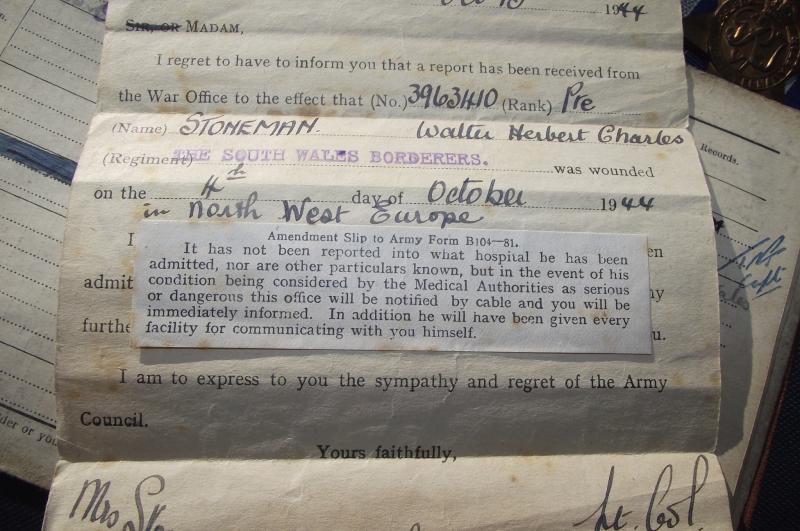 1944
Sir, or Madam,
I regret to have to inform you that a report has been received from
the War Office to the effect that (No.) 3963410 (Rank) Pte
(Name) STONEMAN. Walter Herbert Charles
(Regiment) THE SOUTH WALES BORDERERS. was wounded
on the 4th day of October 1944
in North West Europe
Amendment Slip to Army Form B104—81.
It has not been reported into what hospital he has been
admitted, nor are other particulars known, but in the event of his
condition being considered by the Medical Authorities as serious
or dangerous this office will be notified by cable and you will be
immediately informed. In addition he will have been given every
facility for communicating with you himself.
I
admit
furthe
u.
I am to express to you the sympathy and regret of the Army
Council.
Yours faithfully,
Mrs
Lt. Col
Records.